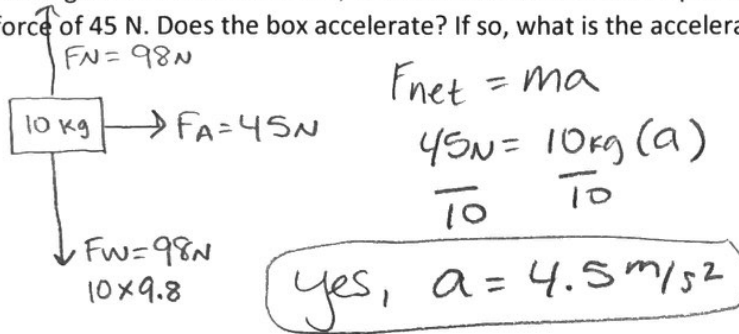 force of 45 N. Does the box accelerate? If so, what is the accelera
FN = 98N
10 kg
FA = 45N
FW = 98N
10 x 9.8
Fnet = ma
45N = 10kg (a)
10 10
yes, a = 4.5 m/s²